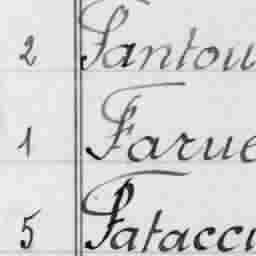 2 Fantou
1 Farue
5 Fatacci